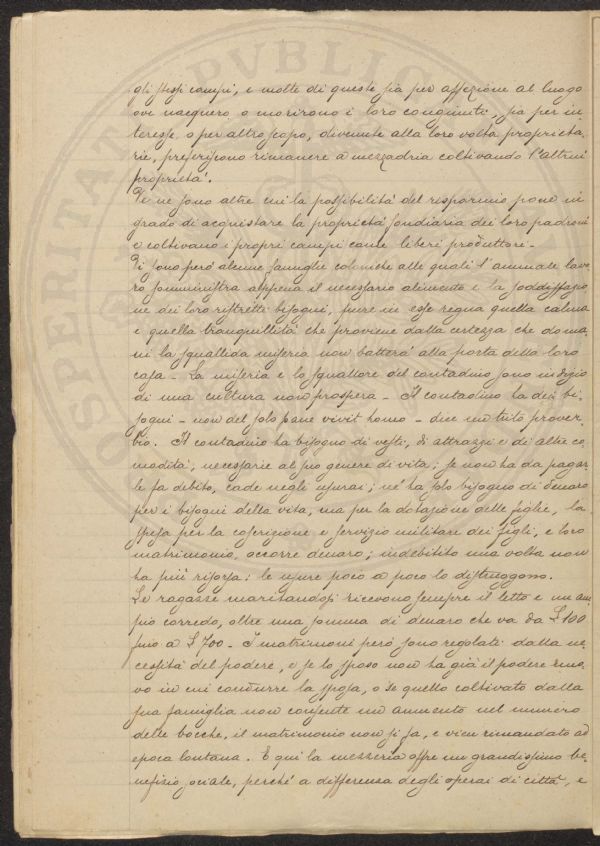 gli stessi campi, e molte di queste sia per affezione al luogo
ove nacquero, o morirono i loro congiunti, sia per in
teresse, o per altro scopo, divenute alla loro volta proprieta,
rie, preferiscono rimanere a mezzadria coltivando l'altrui
proprietà.
Vi ne sono altre cui la possibilità del risparmio pone in
grado di acquistare la proprietà fondiaria dei loro padroni
e coltivano i propri campi come liberi produttori -
Vi sono però alcune famiglie coloniche alle quali l'annuale lavo,
ro somministra appena il necessario alimento e la soddisfazio
ne dei loro ristretti bisogni, pure in esse regna quella calma
e quella tranquillità che proviene dalla certezza che doma,
ni la squallida miseria non batterà alla porta della loro
casa - La miseria e lo squallore del contadino sono indizio
di una cultura non prospera - Il contadino ha dei bi,
sogni - non del solo pane vivit homo - dice un trito prover,
bio. Il contadino ha bisogno di vesti, di attrazzi e di altre co
modità, necessarie al suo genere di vita; se non ha da pagar,
le fa debito, cade negli usurai; nè ha solo bisogno di denaro
per i bisogni della vita, ma per la dotazione delle figlie, la
spesa per la coscrizione e servizio militare dei figli, e loro
matrimonio, occorre denaro; indebitito una volta non
ha più risorsa: le usure poco a poco lo distruggono.
Le ragazze maritandosi ricevono sempre il letto e un am
pio corredo, oltre una somma di denaro che va da £ 100
fino a £ 700 - I matrimoni però sono regolati dalla ne,
cessità del podere, e se lo sposo non ha già il podere nuo,
vo in cui condurre la sposa, o se quello coltivato dalla
sua famiglia non consente un aumento nel numero
delle bocche, il matrimonio non si fa, e vien rimandato ad
epoca lontana. E qui la mezzeria offre un grandissimo be,
nefizio sociale, perché a differenza degli operai di città, e